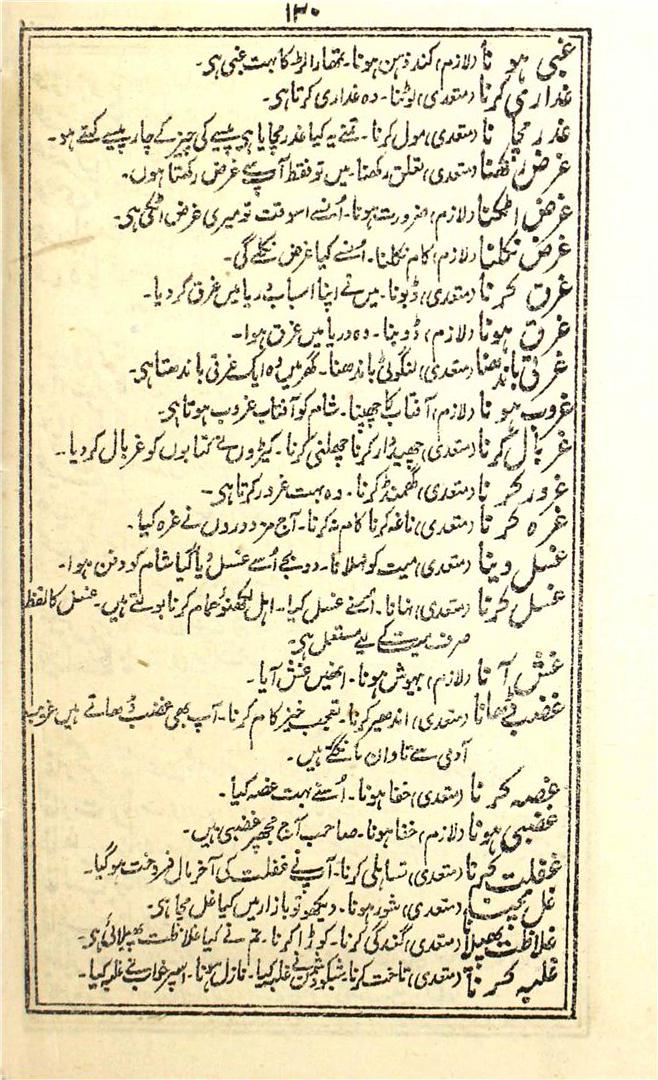 ۱۳۰
غبی ہو نا (لازم) کند ذہن ہونا۔ تمھارا لڑکا بہت غبی ہی۔
غداری کرنا (متعدی) لوٹنا۔ وہ غداری کرتا ہی۔
غدر مچا نا (متعدی) مول کرنا۔ تمنے یہ کیا غدر مچایا ہی پیسے کی چیز کے چار پیسے کہتے ہو۔
غرض رکھنا (متعدی) تعلق رکھنا۔ میں تو فقط آپ سے غرض رکھتا ہوں۔
غرض اٹکنا (لازم) ضرورت ہونا۔ اُنسے اسوقت تو میری غرض اٹکی ہی۔
غرض نکلنا (لازم) کام نکلنا۔ اُنسے کیا غرض نکلے گی۔
غرق کر نا (متعدی) ڈبونا۔ میں نے اپنا اسباب دریا میں غرق کر دیا۔
غرق ہونا (لازم) ڈوبنا۔ وہ دریا میں غرق ہوا۔
غرقی باندھنا (متعدی) لنگوٹی باندھنا۔ گھر میں وہ ایک غرقی باندھتا ہی۔
غروب ہو نا (لازم) آفتاب کا چھپنا۔ شام کو آفتاب غروب ہوتا ہی۔
غربال کرنا (متعدی) چھید ڈار کرنا چھلنی کرنا۔ کیڑوں نے کتابوں کو غربال کر دیا۔
غرور کر نا (متعدی) گھمنڈ کرنا۔ وہ بہت غرور کرتا ہی۔
غرہ کر نا (متعدی) ناغہ کرنا کام نہ کرنا۔ آج مزدوروں نے غرہ کیا۔
غسل دینا (متعدی) میت کو نہلانا۔ دو بجے اُسے غسل دیا گیا شام کو دفن ہوا۔
غسل کرنا (متعدی) نہانا۔ اُسنے غسل کیا۔ اہل لکھنؤ حمام کرنا بولتے ہیں۔ غسل کا لفظ
صرف میت کے لیے مستعمل ہی۔
غش آ نا (لازم) بیہوش ہونا۔ انھیں غش آیا۔
غضب ڈھانا (متعدی) اندھیر کرنا۔ تعجب خیز کام کرنا۔ آپ بھی غضب ڈھاتے ہیں غریب
آدمی سے تاوان مانگتے ہیں۔
غصہ کر نا (متعدی) خفا ہونا۔ اُسنے بہت غصہ کیا۔
غضبی ہونا (لازم) خفا ہونا۔ صاحب آج مجھپر غضبی ہیں۔
غفلت کرنا (متعدی) تساہلی کرنا۔ آپ نے غفلت کی آخر مال فروخت ہو گیا۔
غل مچنا (متعدی) شور ہونا۔ دیکھو تو بازار میں کیا غل مچا ہی۔
غلاظت پھیلانا (متعدی) گندگی کرنا۔ کوڑا کرنا۔ تم نے کیا غلاظت پھیلائی ہی۔
غلبہ کر نا (متعدی) تاخت کرنا۔ شبکو دشمن نے غلبہ کیا۔ نازل ہونا۔ اسپر خواب نے غلبہ کیا۔